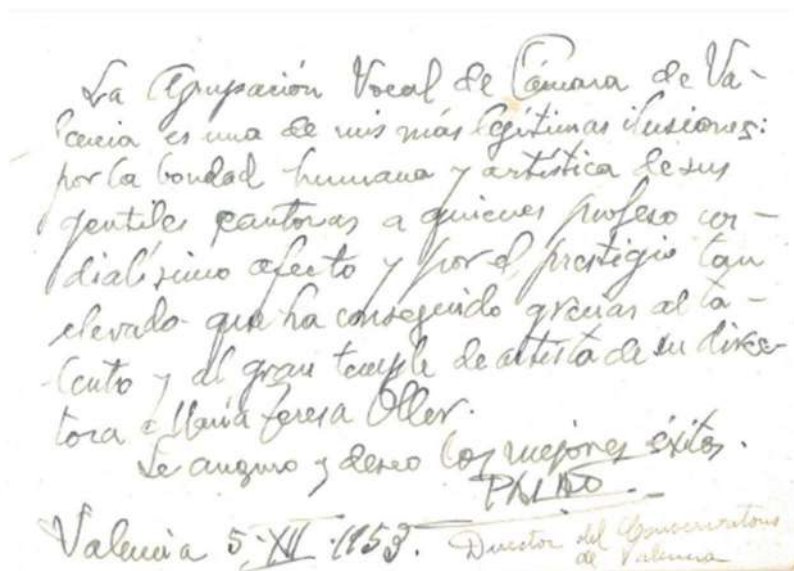 La Agrupación Vocal de Cámara de Va-
lencia es una de mis más legítimas ilusiones:
por la bondad humana y artística de sus
gentiles cantoras a quienes profeso cor-
dialísimo afecto y por el prestigio tan
elevado que ha conseguido gracias al ta-
lento y al gran temple de artista de su direc-
tora María Teresa Oller.
Le auguro y deseo los mejores éxitos.
PALAO
Valencia 5-XII-1953.
Director del Conservatorio
de Valencia